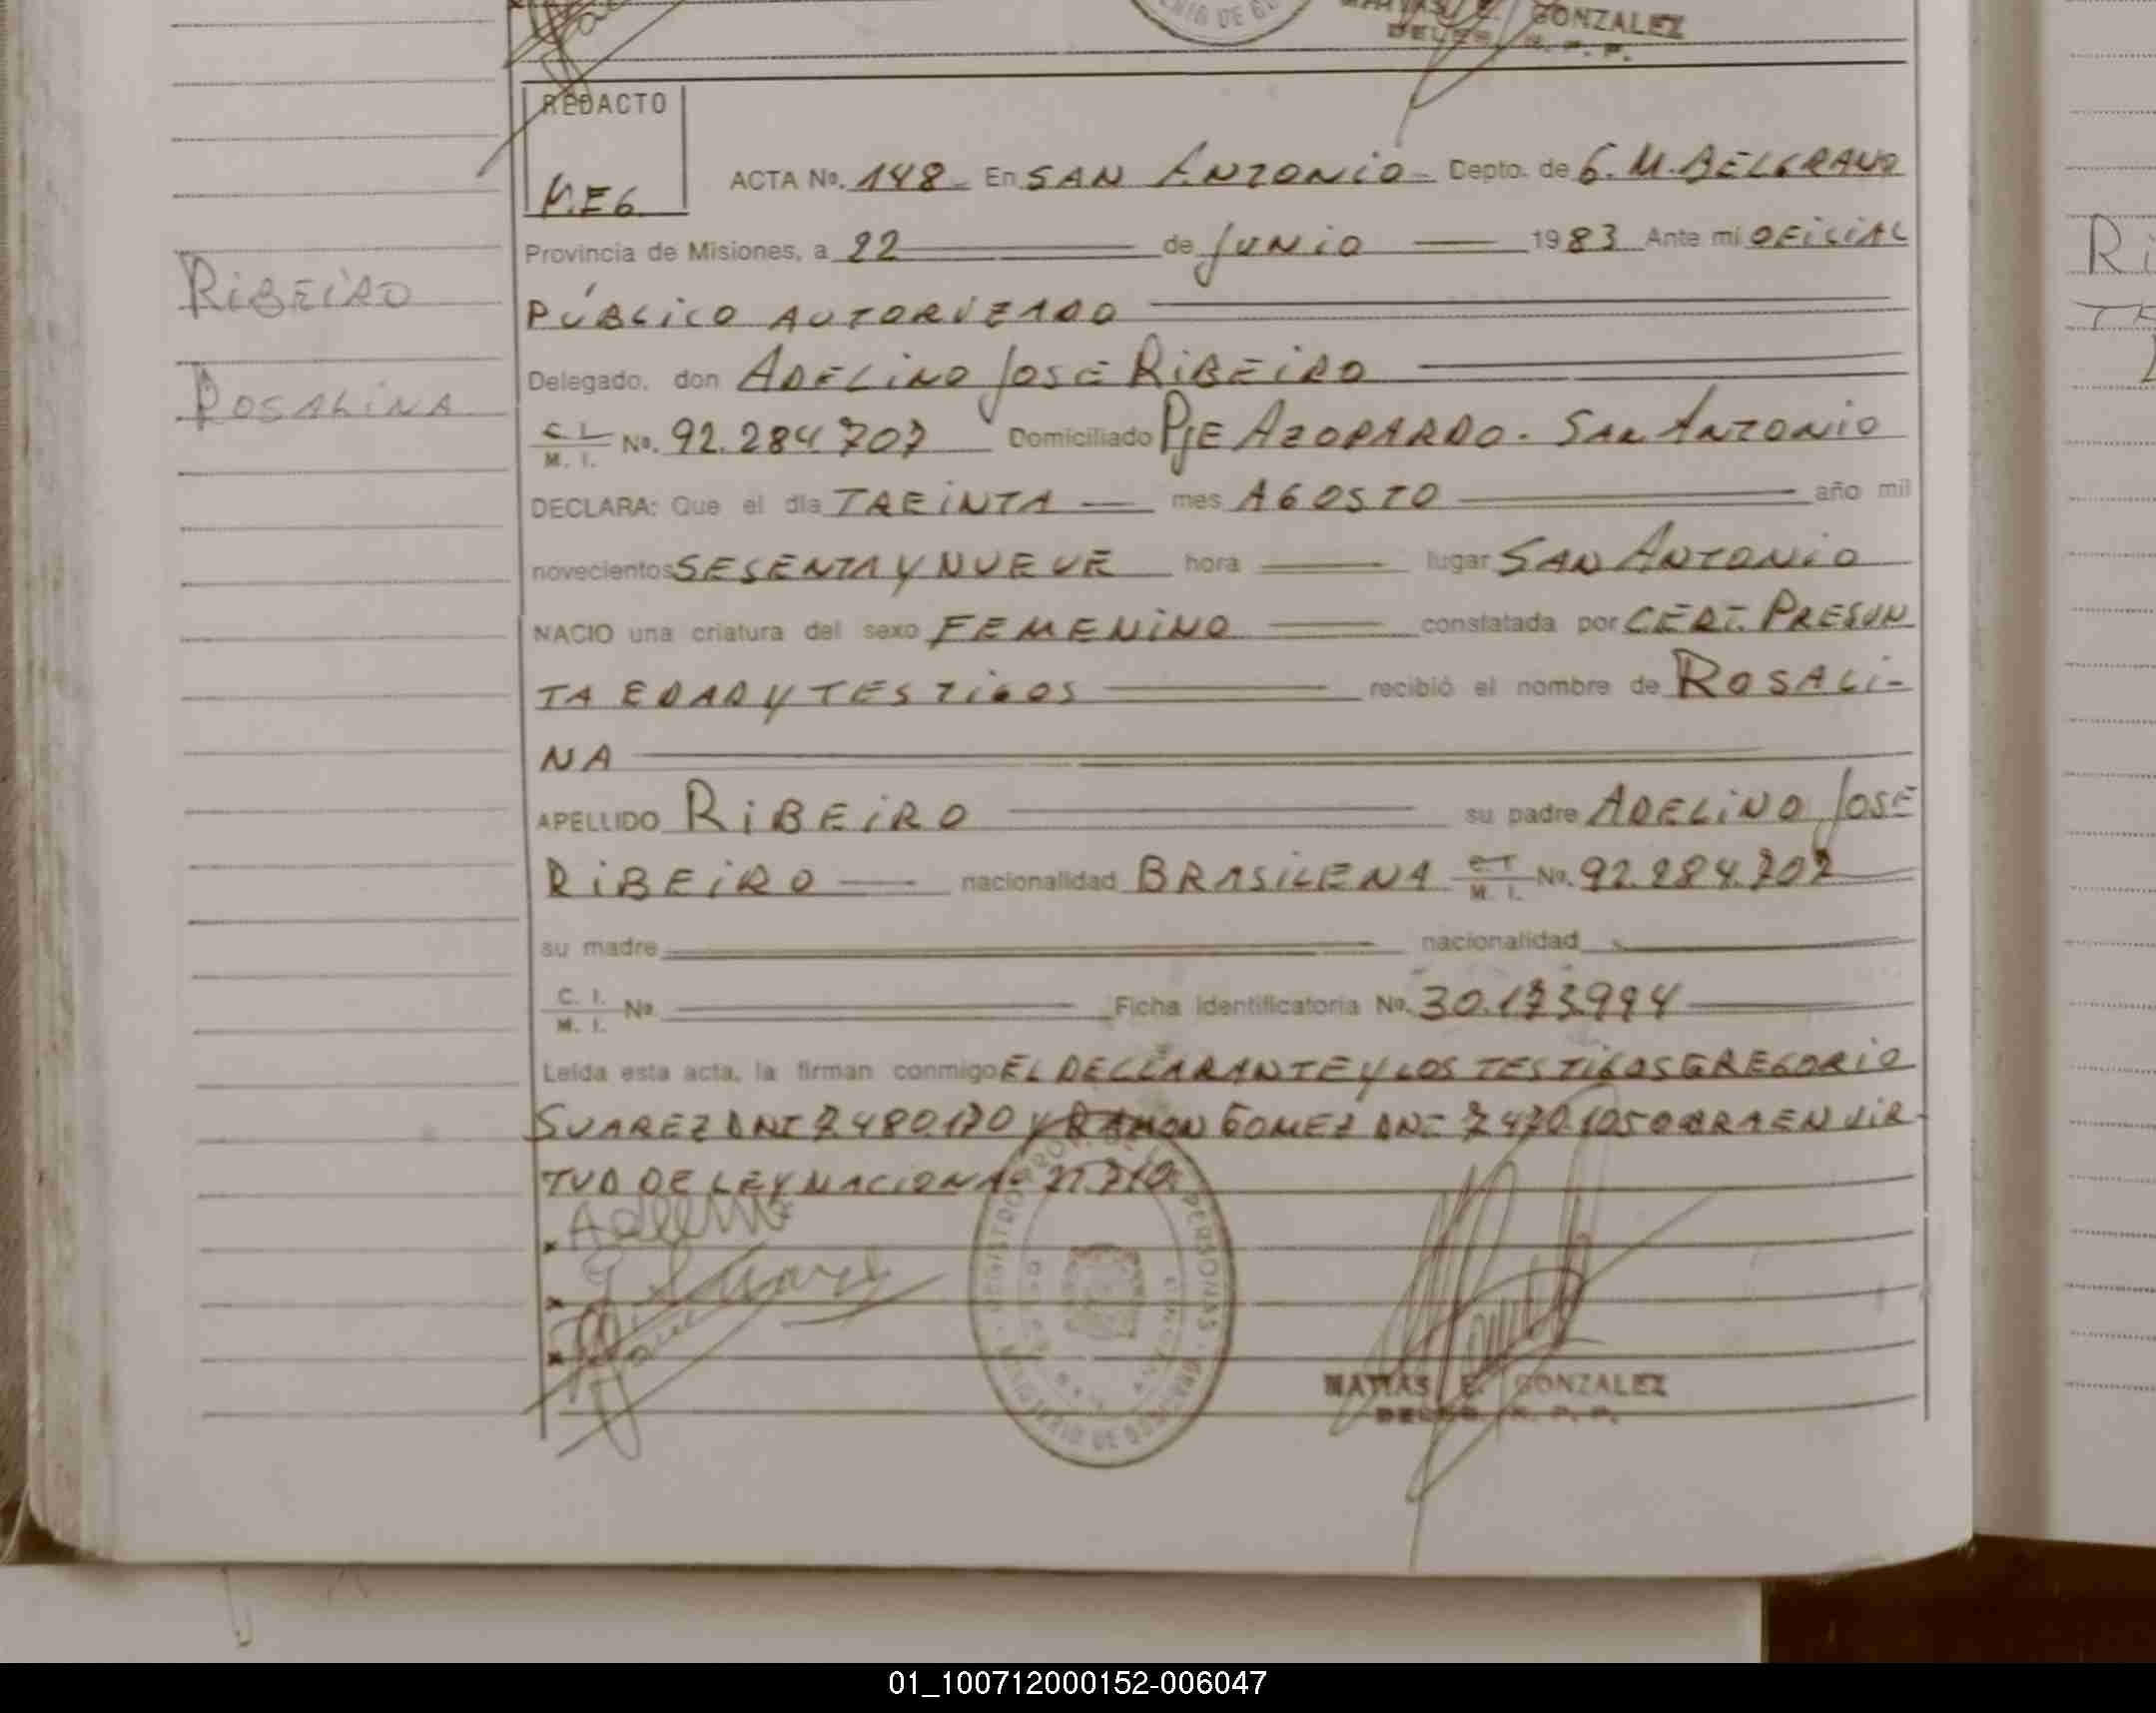 GONZALEZ
REDACTO
M.E G.
ACTA No. 148 En SAN ANTONIO Depto. de G. M. BELGRANO
Provincia de Misiones, a 22 de JUNIO 1983 Ante mi OFICIAL
PÚBLICO AUTORIZADO
Delegado, don ADELINO JOSÉ RIBEIRO
C. I. M. I. No. 92.284.707 Domiciliado PJE AZOPARDO. SAN ANTONIO
DECLARA: Que el día TREINTA mes AGOSTO año mil
novecientos SESENTA Y NUEVE hora lugar SAN ANTONIO
NACIO una criatura del sexo FEMENINO constatada por CERT. PRESUN
TA EDAD Y TESTIGOS recibió el nombre de ROSALI-
NA
APELLIDO RIBEIRO su padre ADELINO JOSÉ
RIBEIRO nacionalidad BRASILENA C. I. M. I. No. 92.284.707
su madre nacionalidad
C. I. M. I. No. Ficha Identificatoria No. 30.173.994
Leída esta acta, la firman conmigo EL DECLARANTE Y LOS TESTIGOS GREGORIO
SUAREZ DNI 7.480.170 Y RAMON GOMEZ DNI 7.470.105 OBRA EN VIR
TUD DE LEY NACIONAL
MATIAS E. GONZALEZ
DELEG. R. P. P.
RIBEIRO
ROSALINA
01_100712000152-006047